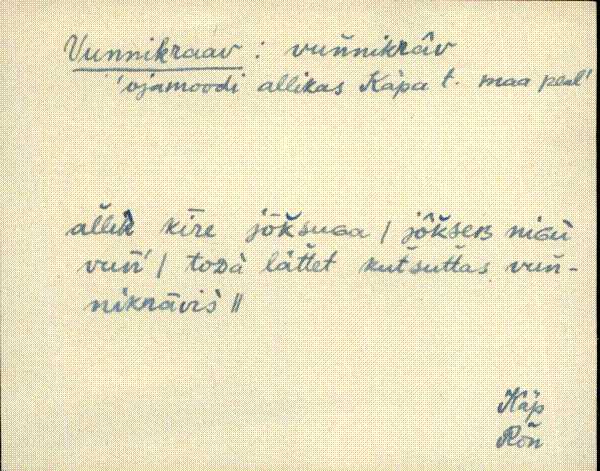 Vunnikraav : vuñnikrâv
'ojamoodi allikas Käpa t. maa peal'
allik kīre jōksuga / jôkseb nigù
vuñ' / todà lättet kutsuttas vuñ-
nikrāvis̀ ||
Käp
Rõn